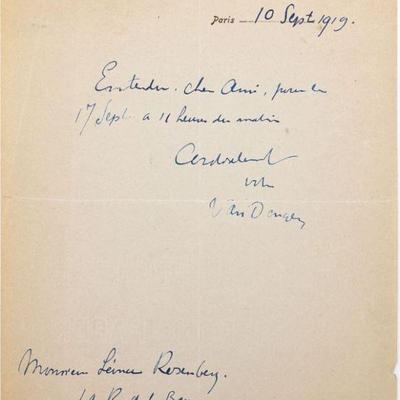 Paris 10 Sept 1919.
Entendu. cher Ami, pour le
17 Sept. a 11 heures du matin
Cordialement
Van Dongen
Monsieur Léonce Rosenberg.